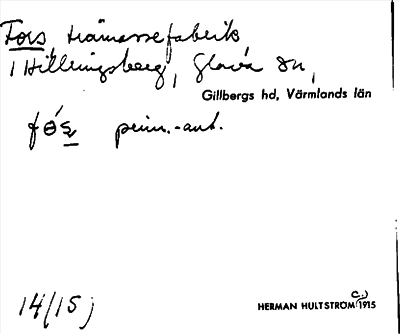 Fors trämassefabrik
i Hillringsberg, Glava sn,
Gillbergs hd, Värmlands län
prim.-ant.
14/15
HERMAN HULTSTRÖM c.) 1915